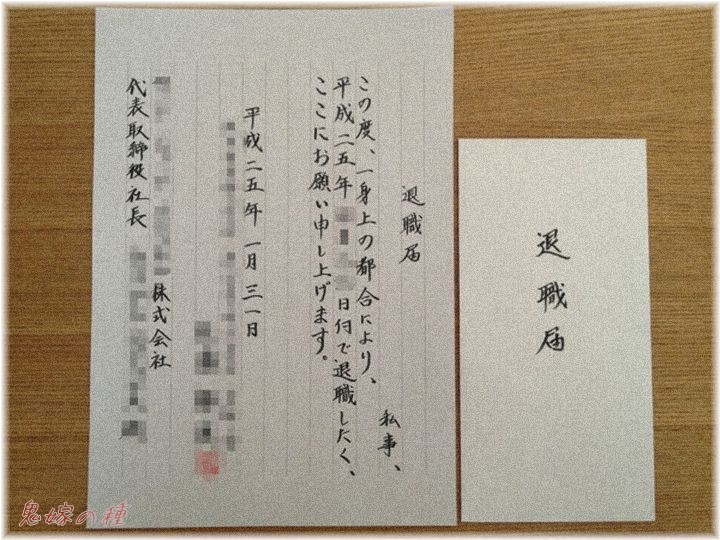 退職届
私事、
この度、一身上の都合により、
平成二五年 日付で退職したく、
ここにお願い申し上げます。
平成二五年 一月三一日
株式会社
代表取締役社長
退職届
鬼嫁の種